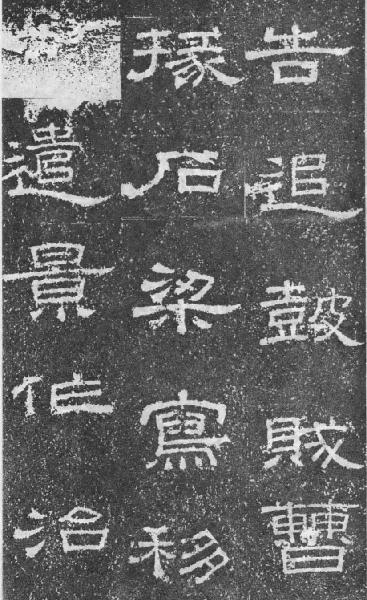 告追皷賊曹
掾石梁寫移
遣景作治